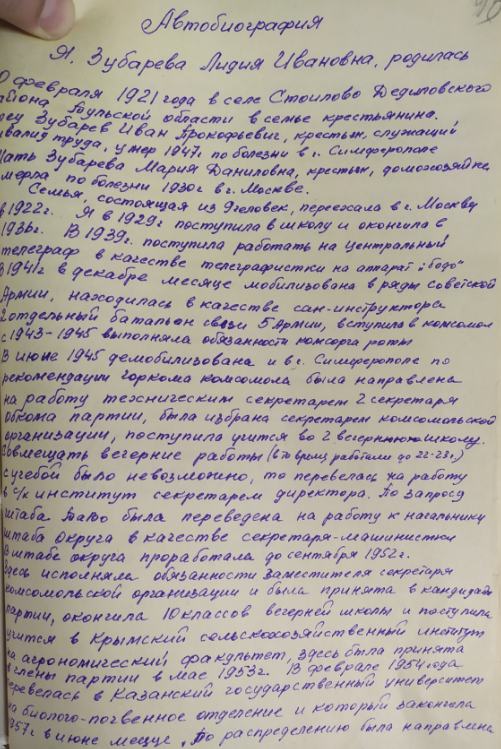 Автобиография
Я, Зубарева Лидия Ивановна, родилась
0 февраля 1921 года в селе Стоилово Дедиловского
айона, Тульской области в семье крестьянина.
тец Зубарев Иван Прокофьевич, крестьян, служащий,
нвалид труда, умер 1947г по болезни в г. Симферополе
Мать Зубарева Мария Даниловна, крестьян, домохозяйка
умерла по болезни 1930г в г. Москве.
Семья, состоящая из 9 человек, переехала в г. Москву
в 1922г. Я в 1929г поступила в школу и окончила в
1936г. В 1939г. поступила работать на Центральный
телеграф в качестве телеграфистки на аппарат "Бодо"
В 1941г в декабре месяце мобилизована в ряды Советской
Армии, находилась в качестве сан-инструктора
2 отдельный батальон связи 5 Армии, вступила в комсомол
с 1943-1945 выполняла обязанности комсорга роты
В июне 1945 демобилизована и в г. Симферополе по
рекомендации горкома комсомола была направлена
на работу техническим секретарем 2 секретаря
обкома партии, была избрана секретарем комсомольской
организации, поступила учится во 2 вечернюю школу.
Совмещать вечерние работы (в то время работали до 22-23г.)
с учебой было невозможно, то перевелась на работу
в с/х институт секретарем директора. По запросу
штаба была переведена на работу к начальнику
штаба округа в качестве секретаря-машинистки
В штабе округа проработала до сентября 1952г.
Здесь исполняла обязанности заместителя секретаря
комсомольской организации и была принята в кандидаты
партии, окончила 10 классов вечерней школы и поступила
учится в Крымский сельскохозяйственный институт
на агрономический факультет, здесь была принята
в члены партии в мае 1953г. В феврале 1954 года
перевелась в Казанский государственный университет
на биолого-почвенное отделение и который закончила
1957г в июне месяце, по распределению была направлена